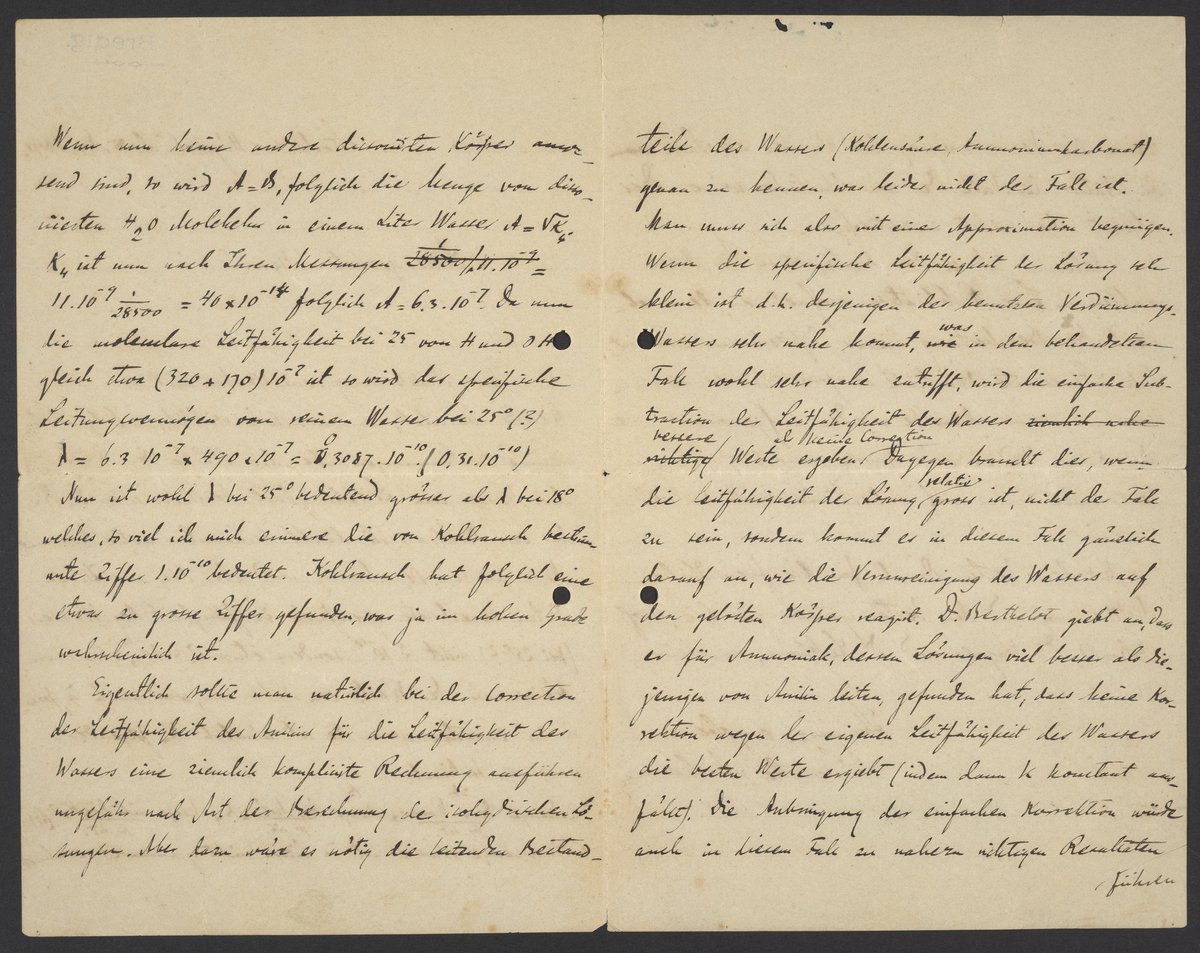 Wenn nun keine andere dissociirten Körper anwe-
send sind, so wird A=B, folglich die Menge von disso-
ciierten H2O Molekeln in einem Liter Wasser A = √K4.
K4 ist nun nach Ihren Messungen 1/28500 / 11.10^-9 =
11.10^-9 1/28500 = 40 x 10^-14 folglich A = 6.3.10^-7. Da nun
die molekulare Leitfähigkeit bei 25 von H und OH
gleich etwa (320 + 170) 10^-7 ist so wird das specifische
Leitungsvermögen von reinem Wasser bei 25° (?)
λ = 6.3 10^-7 x 490 x 10^-7 = 0,3087.10^-10 (0,31.10^-10)
Nun ist wohl λ bei 25° bedeutend grösser als λ bei 18°
welches, so viel ich mich erinnere die von Kohlrausch bestimm-
te Ziffer 1.10^-10 bedeutet. Kohlrausch hat folglich eine
etwas zu grosse Ziffer gefunden, was ja im hohen Grade
wahrscheinlich ist.
Eigentlich sollte man natürlich bei der Correction
der Leitfähigkeit des Anilins für die Leitfähigkeit des
Wassers eine ziemlich komplicirte Rechnung ausführen
ungefähr nach Art der Berechnung de isohydrischen Lö-
sungen. Aber dazu wäre es nötig die leitenden Bestand-
teile des Wassers (Kohlensäure, Ammoniumkarbonat)
genau zu kennen, was leider nicht der Fall ist.
Man muss sich also mit einer Approximation begnügen.
Wenn die specifische Leitfähigkeit der Lösung sehr
klein ist d.h. derjenigen des benutzten Verdünnungs-
Wassers sehr nahe kommt, wie was in dem behandelten
Fall wohl sehr nahe zutrifft, wird die einfache Sub-
traction der Leitfähigkeit des Wassers ziemlich nahe
richtige bessere Werte ergeben als keine Correction. Dagegen braucht dies, wenn
die Leitfähigkeit der Lösung relativ gross ist, nicht der Fall
zu sein, sondern kommt es in diesem Fall gänzlich
darauf an, wie die Verunreinigung des Wassers auf
den gelösten Körper reagirt. D. Berthelot giebt an, dass
er für Ammoniak, dessen Lösungen viel besser als die-
jenigen von Anilin leiten, gefunden hat, dass keine Kor-
rektion wegen der eigenen Leitfähigkeit des Wassers
die besten Werte ergiebt (indem dann K konstant aus-
fällt). Die Anbringung der einfachen Korrektion würde
auch in diesem Fall zu nahezu richtigen Resultaten
führen